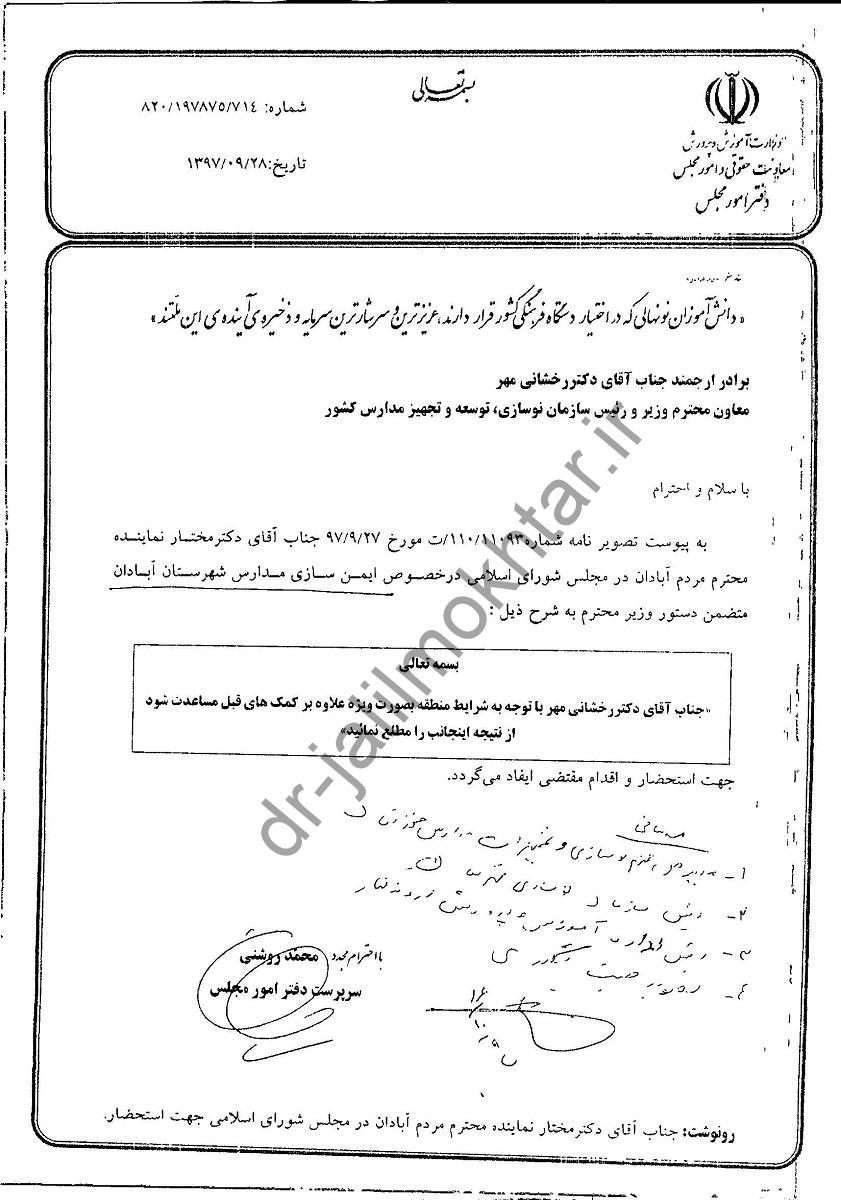 بسمه تعالی
وزارت آموزش و پرورش
معاونت حقوقی و امور مجلس
دفتر امور مجلس
شماره: ۸۲۰/۱۹۷۸۷۵/۷۱۴
تاریخ:۱۳۹۷/۰۹/۲۸
« دانش آموزان نونهالی که در اختیار دستگاه فرهنگی کشور قرار دارند، عزیزترین و سرشارترین سرمایه و ذخیره ی آینده ی این ملتند »
برادر ارجمند جناب آقای دکتررخشانی مهر
معاون محترم وزیر و رئیس سازمان نوسازی، توسعه و تجهیز مدارس کشور
با سلام و احترام
به پیوست تصویر نامه شماره۱۱۰/۱۱۰۹۳/ت مورخ ۹۷/۹/۲۷ جناب آقای دکترمختار نماینده
محترم مردم آبادان در مجلس شورای اسلامی درخصوص ایمن سازی مدارس شهرستان آبادان
متضمن دستور وزیر محترم به شرح ذیل :
بسمه تعالی
«جناب آقای دکتررخشانی مهر با توجه به شرایط منطقه بصورت ویژه علاوه بر کمک های قبل مساعدت شود
از نتیجه اینجانب را مطلع نمائید»
جهت استحضار و اقدام مقتضی ایفاد می‌گردد.
۱-
۲- رئیس
۳- رئیس
۴-
با احترام مجدد محمد روشنی
سرپرست دفتر امور مجلس
رونوشت: جناب آقای دکترمختار نماینده محترم مردم آبادان در مجلس شورای اسلامی جهت استحضار.
dr-jalilmokhtar.ir